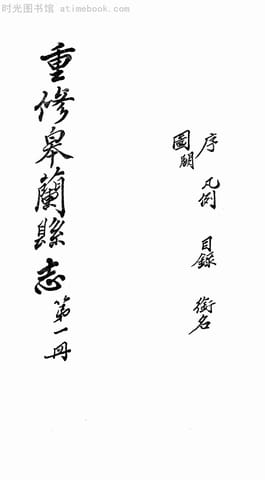 时光图书馆 - atimebook.com
序 凡例 目錄 銜名
圖朔
重修皋蘭縣志 第一冊